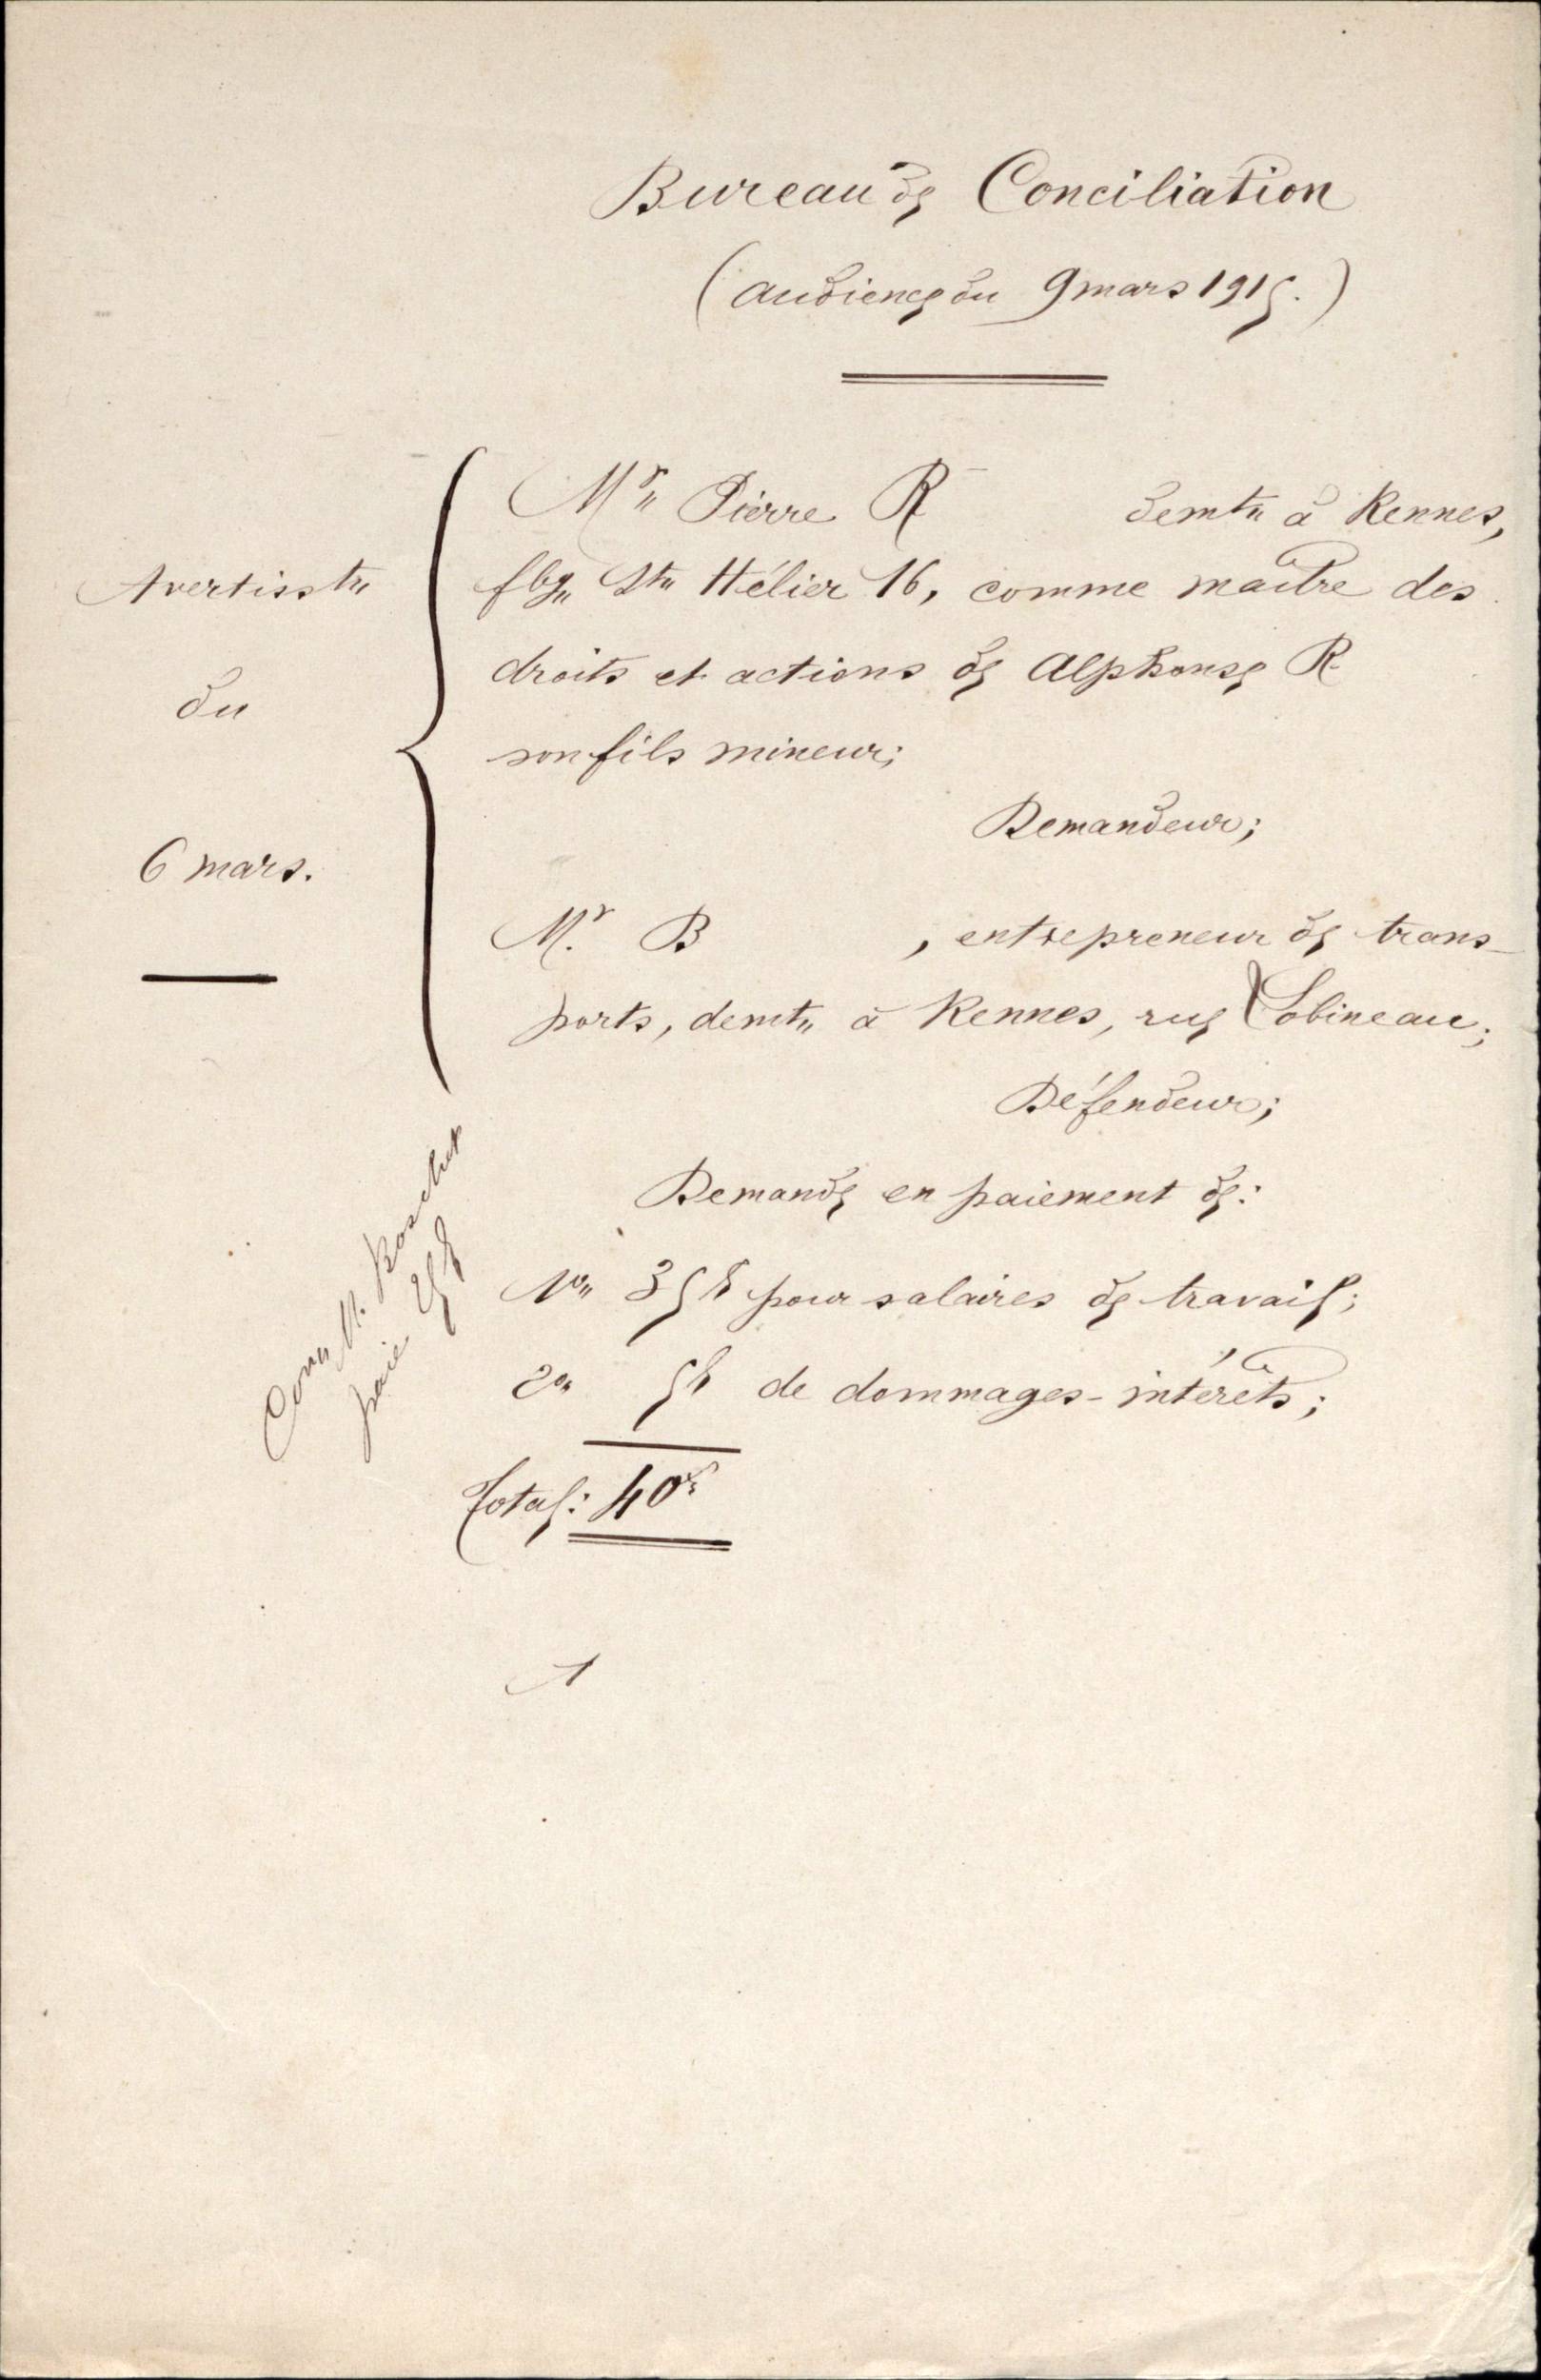 Bureau de Conciliation
(audience du 9 mars 1915.)
Mr Pierre R demt à Rennes,
fbg St Hélier 16, comme maître des
droits et actions de Alphonse R
son fils mineur;
Demandeur;
Avertisst
du
6 mars.
Mr B , entrepreneur de trans-
ports, demt à Rennes, rue Lobineau;
Défendeur;
Demande en paiement de:
1o 35f pour salaires de travail;
2o 5f de dommages-intérêts;
Total: 40f
M.
paie